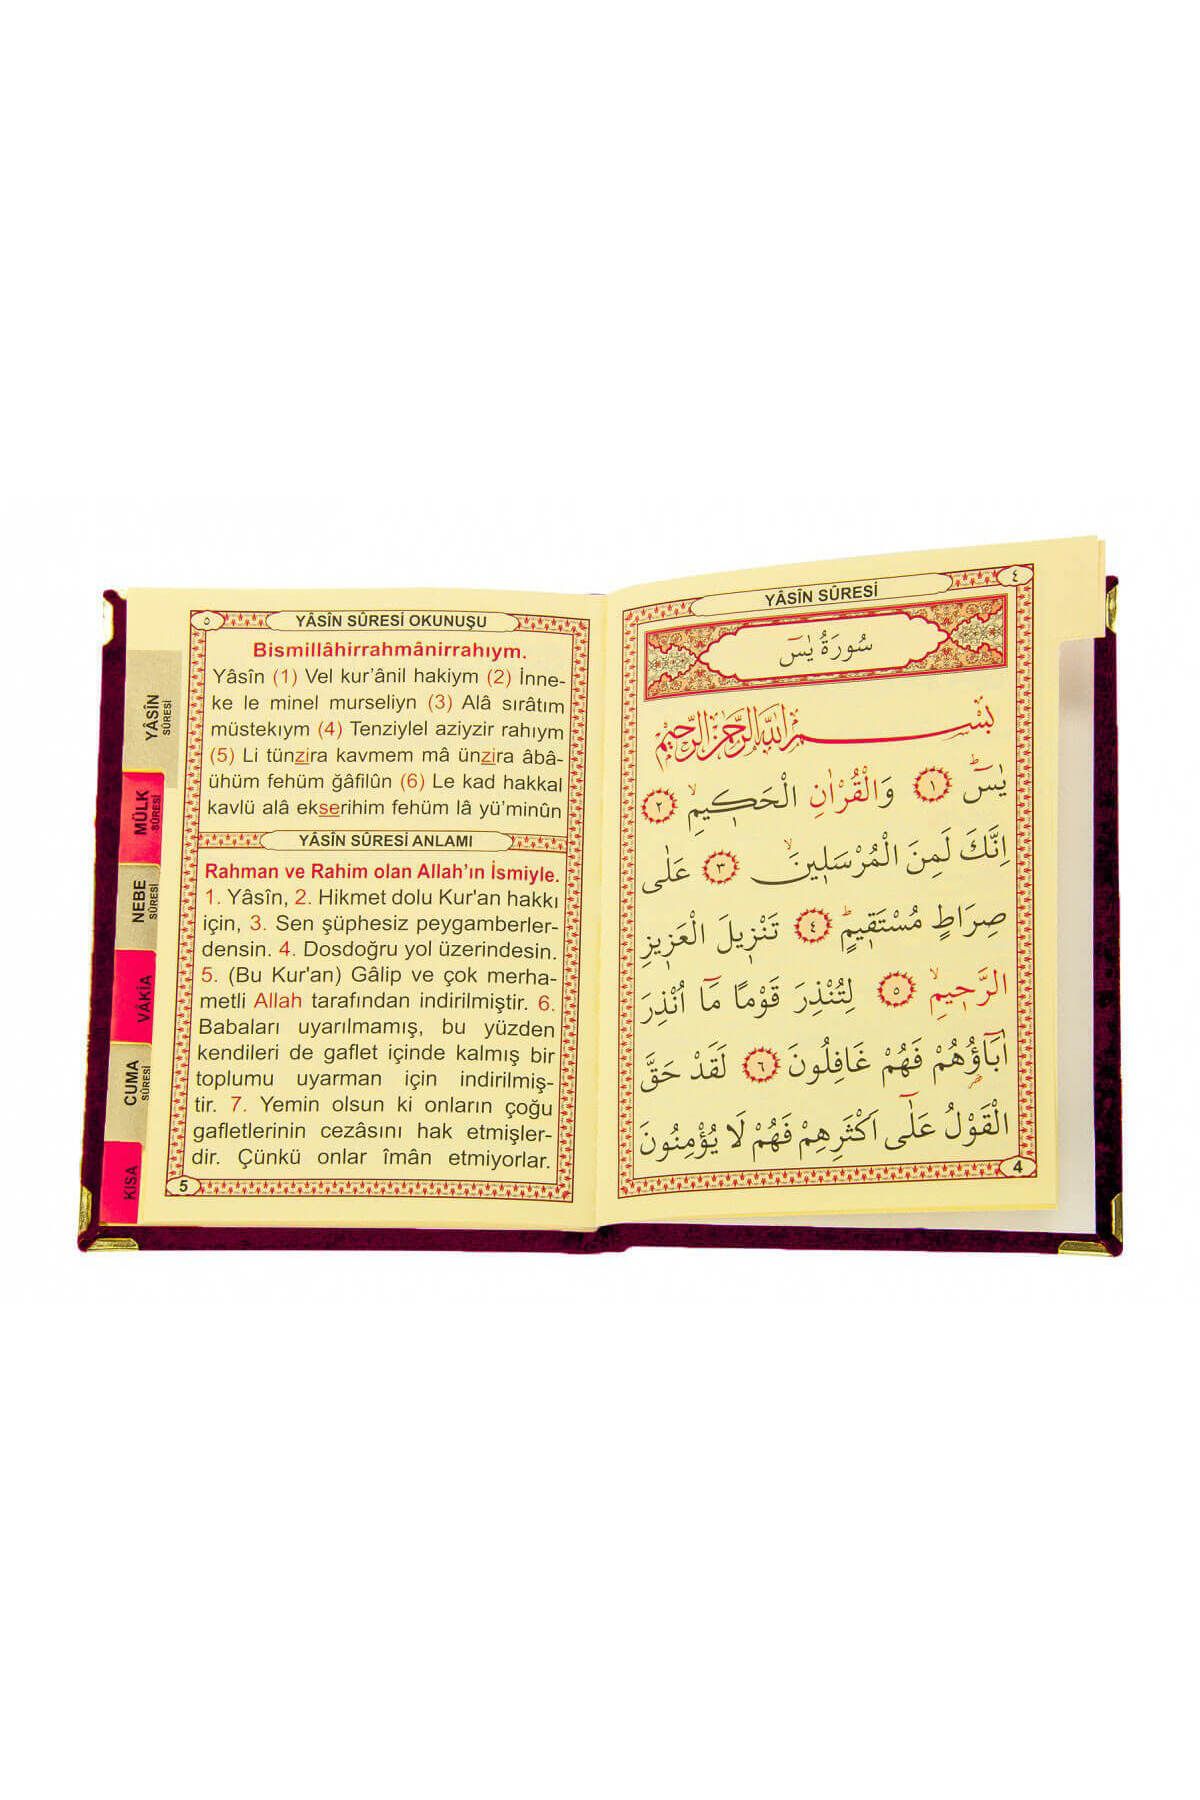 ٤
YÂSİN SÛRESİ
سُورَةُ يٰسٓ
بِسْمِ اللّٰهِ الرَّحْمٰنِ الرَّحِيمِ
يٰسٓ ۚ ﴿١﴾ وَالْقُرْاٰنِ الْحَكٖيمِۙ ﴿٢﴾
اِنَّكَ لَمِنَ الْمُرْسَلٖينَۙ ﴿٣﴾ عَلٰى
صِرَاطٍ مُسْتَقٖيمٍۜ ﴿٤﴾ تَنْزٖيلَ الْعَزٖيزِ
الرَّحٖيمِۙ ﴿٥﴾ لِتُنْذِرَ قَوْمًا مَٓا اُنْذِرَ
اٰبَٓاؤُ۬هُمْ فَهُمْ غَافِلُونَ ﴿٦﴾ لَقَدْ حَقَّ
الْقَوْلُ عَلٰٓى اَكْثَرِهِمْ فَهُمْ لَا يُؤْمِنُونَ
4
٥
YÂSÎN SÛRESİ OKUNUŞU
Bismillâhirrahmânirrahıym.
Yâsîn (1) Vel kur'ânil hakiym (2) İnne-
ke le minel murseliyn (3) Alâ sırâtım
müstekıym (4) Tenziylel aziyzir rahıym
(5) Li tünzira kavmem mâ ünzira âbâ-
ühüm fehüm ğâfilûn (6) Le kad hakkal
kavlü alâ ekserihim fehüm lâ yü'minûn
YÂSÎN SÛRESİ ANLAMI
Rahman ve Rahim olan Allah'ın İsmiyle.
1. Yâsîn, 2. Hikmet dolu Kur'an hakkı
için, 3. Sen şüphesiz peygamberler-
densin. 4. Dosdoğru yol üzerindesin.
5. (Bu Kur'an) Gâlip ve çok merha-
metli Allah tarafından indirilmiştir. 6.
Babaları uyarılmamış, bu yüzden
kendileri de gaflet içinde kalmış bir
toplumu uyarman için indirilmiş-
tir. 7. Yemin olsun ki onların çoğu
gafletlerinin cezâsını hak etmişler-
dir. Çünkü onlar îmân etmiyorlar.
5
YÂSÎN
SÛRESİ
MÜLK
SÛRESİ
NEBE
SÛRESİ
VÂKIA
CUMA
SÛRESİ
KISA